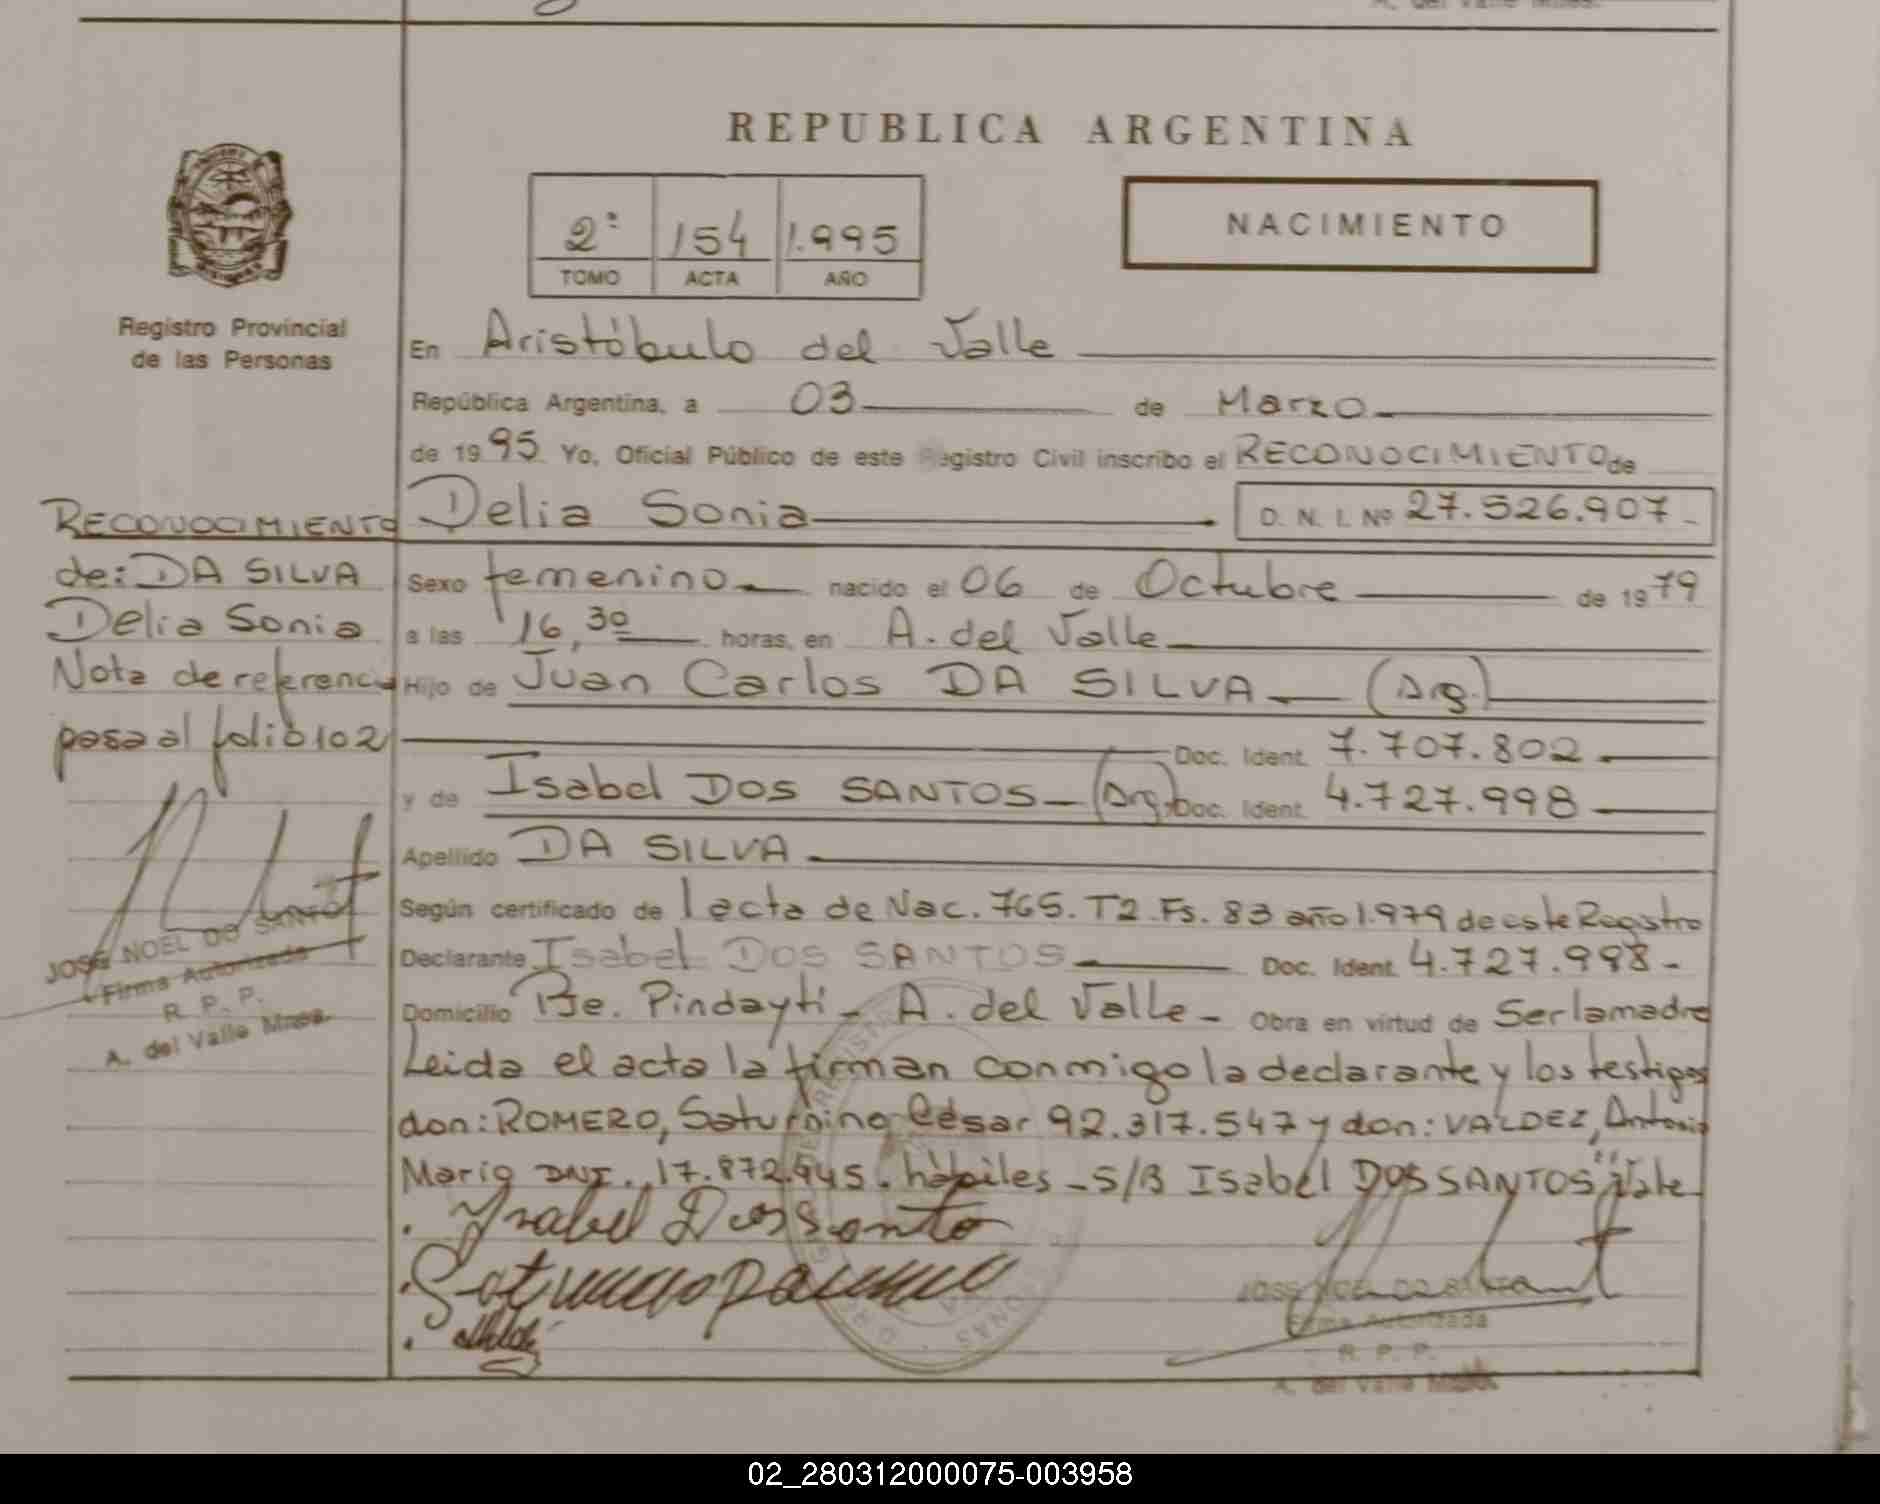 A. del Valle Mnes.
REPUBLICA ARGENTINA
NACIMIENTO
2º 154 1.995
TOMO ACTA AÑO
Registro Provincial
de las Personas
En Aristóbulo del Valle
República Argentina, a 03 de Marzo
de 1995 Yo, Oficial Público de este Registro Civil inscribo el RECONOCIMIENTO de
Delia Sonia D. N. I. Nº 27.526.907-
Sexo femenino nacido el 06 de Octubre de 1979
a las 16,30 horas, en A. del Valle
Hijo de Juan Carlos DA SILVA (Arg.)
Doc. Ident. 7.707.802
y de Isabel DOS SANTOS (Arg) Doc. Ident. 4.727.998
Apellido DA SILVA
Según certificado de l acta de Nac. 765. T2. Fs. 83 año 1.979 de este Registro
Declarante Isabel DOS SANTOS Doc. Ident. 4.727.998-
Domicilio Pje. Pindaytí - A. del Valle - Obra en virtud de Ser la madre
Leida el acta la firman conmigo la declarante y los testigos
don: ROMERO, Saturnino César 92.317.547 y don: VALDEZ, Antonio
Mario DNI. 17.872.945. hábiles - S/B Isabel DOS SANTOS "Vale
Ysabel Dos Santo
JOSE NOEL DO SANTOS
Firma Autorizada
R. P. P.
A. del Valle Mnes.
RECONOCIMIENTO
de: DA SILVA
Delia Sonia
Nota de referencia
pasa al folio 102
JOSE NOEL DO SANTOS
Firma Autorizada
R. P. P.
A. del Valle Mnes.
02_280312000075-003958